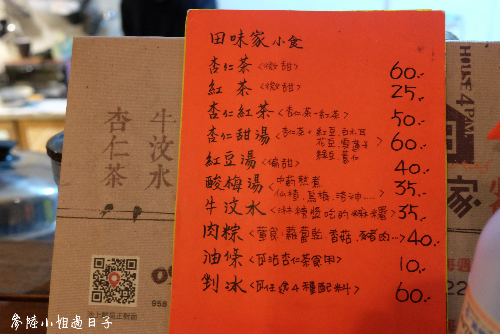 田味家小食
杏仁茶<微甜> 60.-
紅茶<微甜> 25.-
杏仁紅茶<杏仁茶+紅茶> 50.-
杏仁甜湯<杏仁茶+紅豆.白木耳 花豆.雪蓮子 綠豆.薏仁 60.-
紅豆湯<偏甜> 40.-
酸梅湯<中藥熬煮 仙楂.烏梅.洛神....> 35.-
牛汶水<淋糖漿吃的麻糬> 35.-
肉粽<葷食:蘿蔔乾.香菇.豬肉...> 40.-
油條<可沾杏仁茶食用> 10.-
剉冰<可任選4種配料> 60.-
牛汶水
杏仁茶
HOUSE 4PM
家
958
參陸小姐過日子